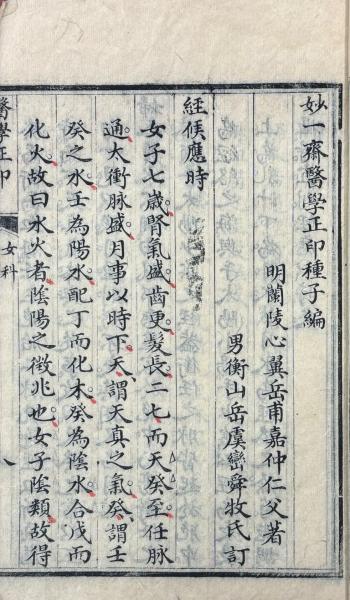 妙一齋醫學正印種子編
明蘭陵心翼岳甫嘉仲仁父著
男衡山岳虞巒舜牧氏訂
經候應時
女子七歲腎氣盛齒更髮長二七而天癸至任脉
通太衝脉盛月事以時下天謂天真之氣癸謂壬
癸之水壬為陽水配丁而化木癸為陰水合戊而
化火故曰水火者陰陽之徵兆也女子陰類故得
醫學正印
女科
八